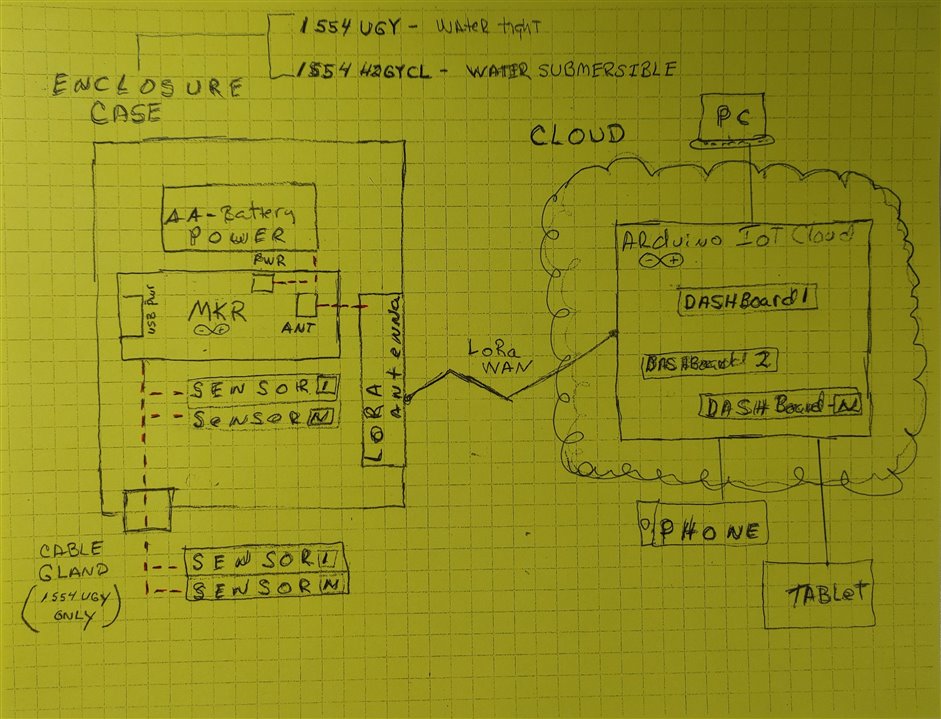 1554 UGY - Water tight
1554 H2GYCL - WATER SUBMERSIBLE
ENCLOSURE
CASE
AA-Battery
POWER
PWR
USB Pwr
MKR
ANT
LORA
antenna
SENSOR 1
SENSOR N
CABLE
GLAND
(1554 UGY
ONLY)
SENSOR 1
SENSOR N
LoRa
WAN
CLOUD
PC
ARduino IoT Cloud
DASHBoard 1
DASHBoard 2
DASHBoard-N
PHONE
TABLeT